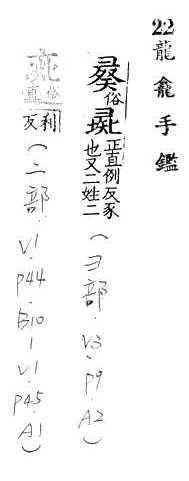 22 龍龕手鑑
俗 彘 正直例反豕也又二姓二（彐部.V3.P9.A2）
俗直利反（二部.V1.P44.B10-V1.P45.A1）